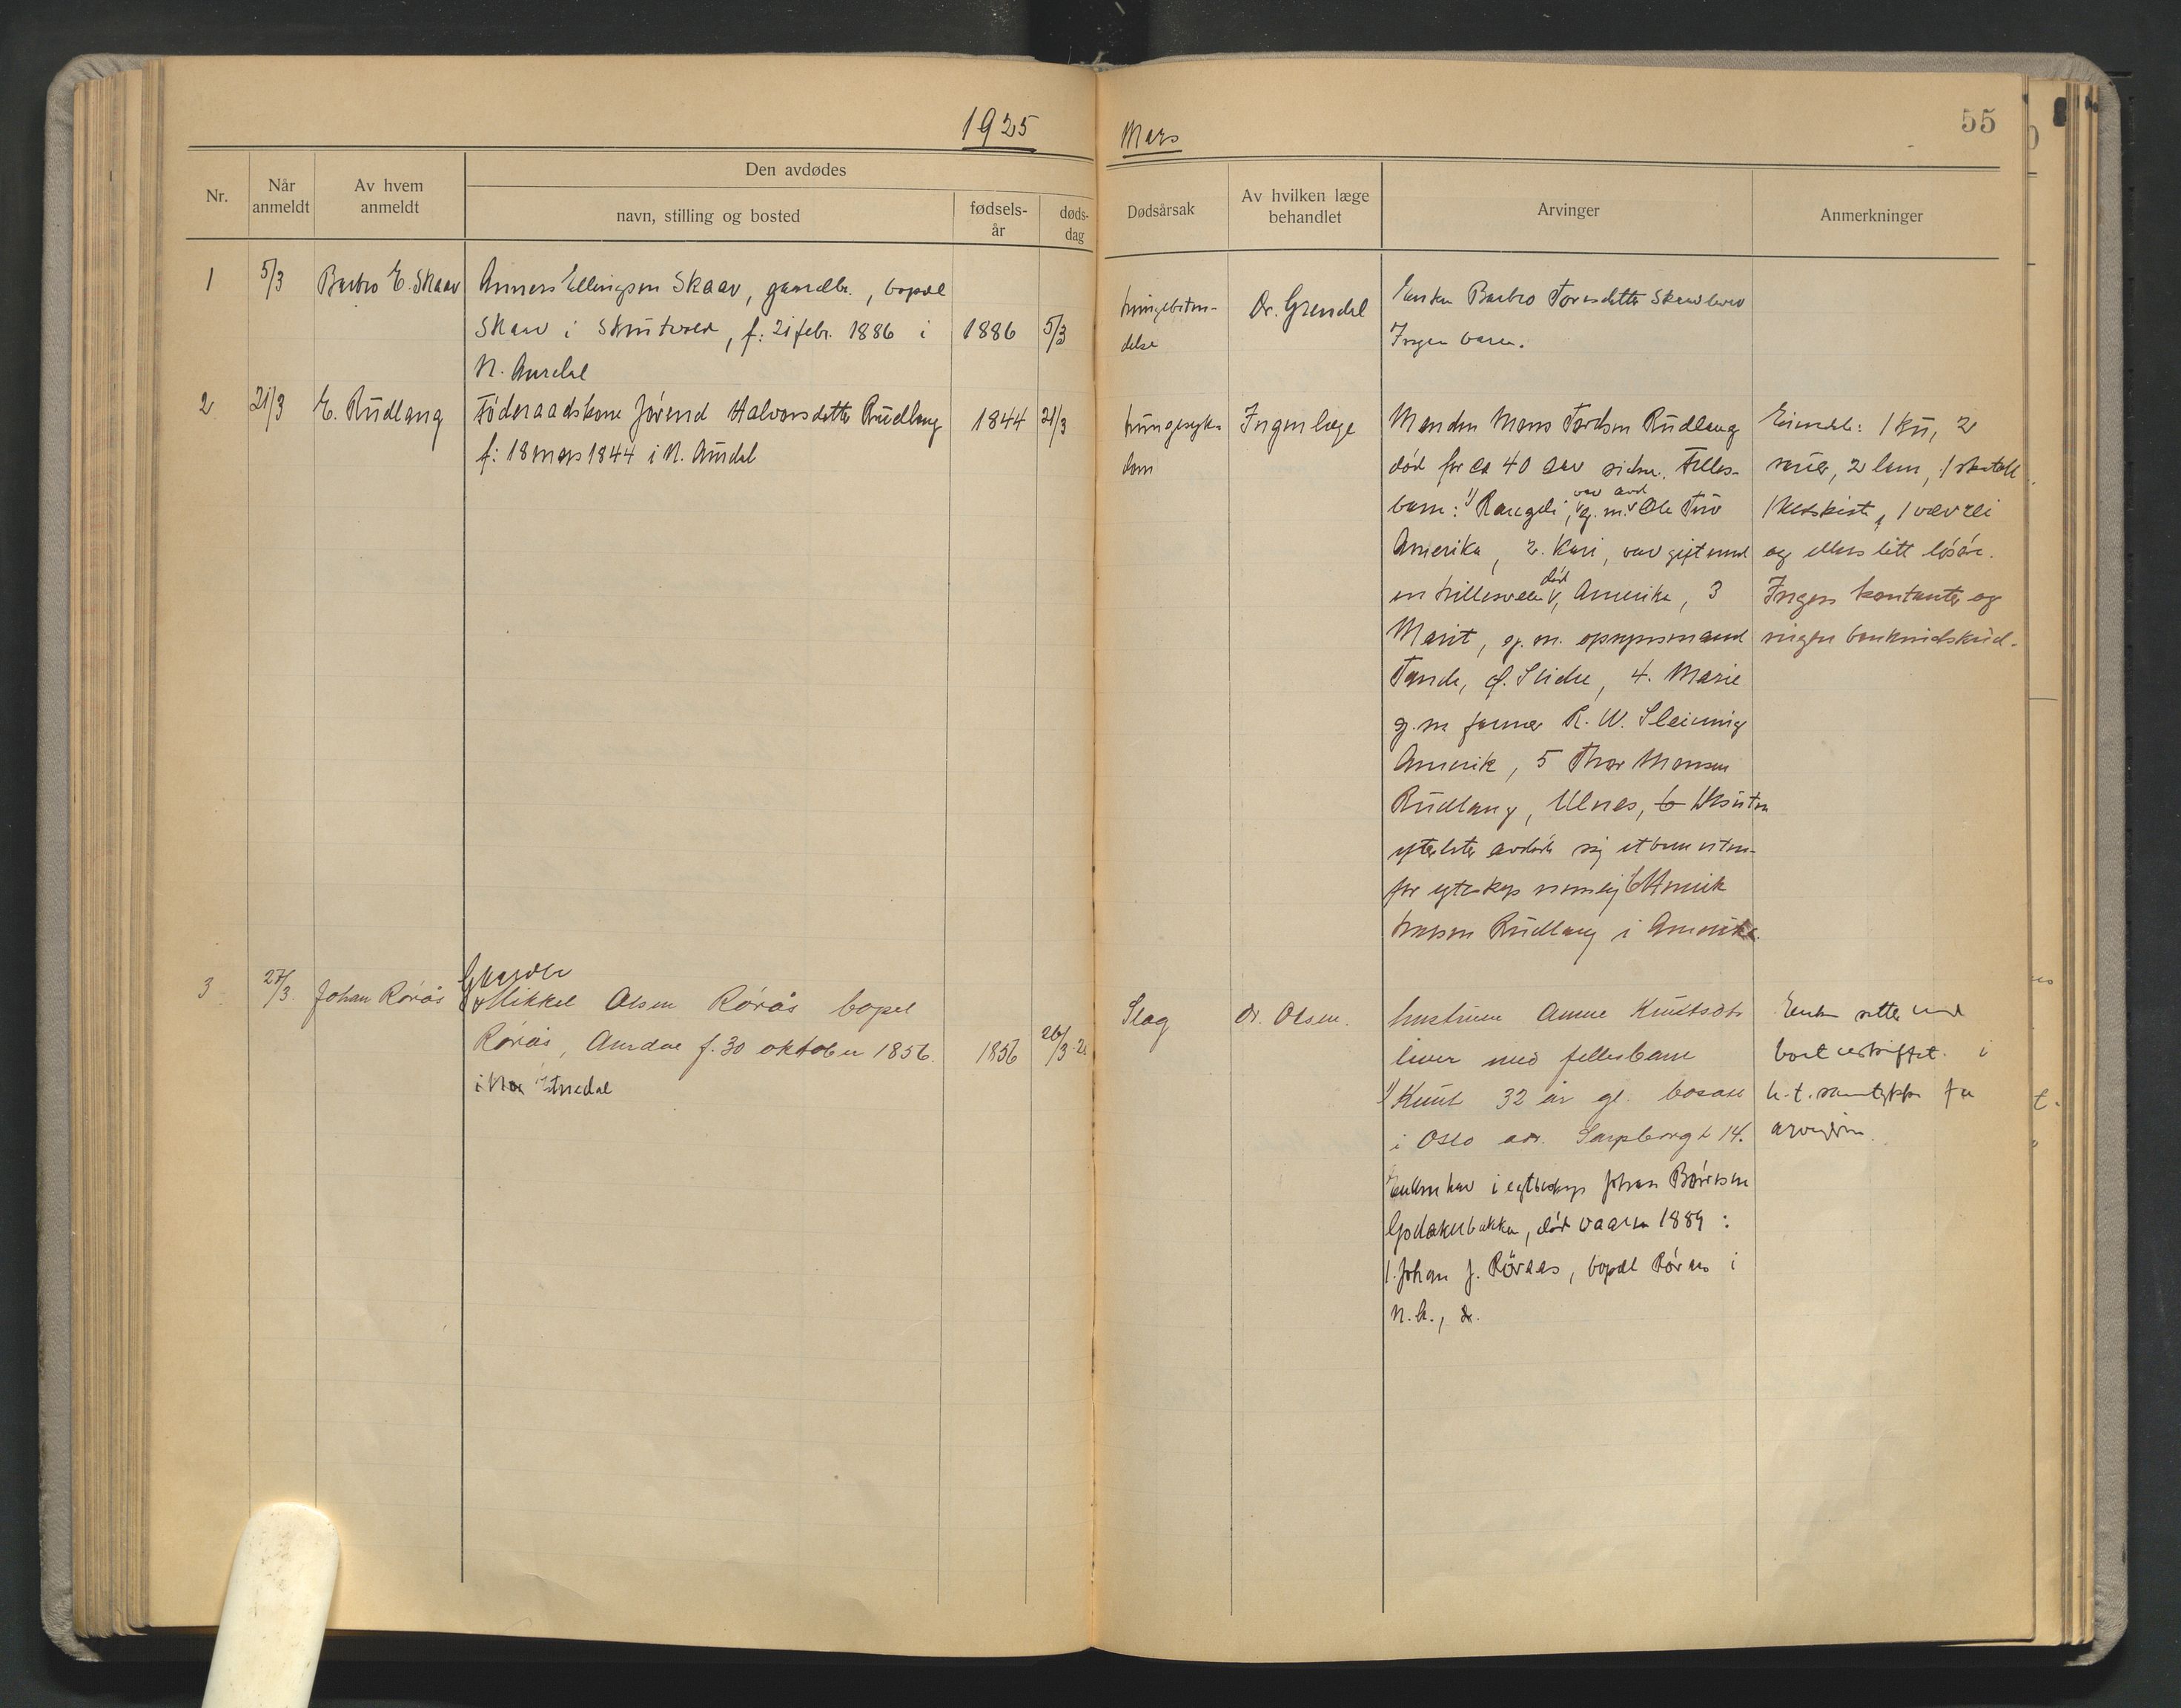 1925
Mars
55
Nr.
Når anmeldt
Av hvem anmeldt
Den avdødes
navn, stilling og bosted
fødsels-år
døds-dag
Dødsårsak
Av hvilken læge behandlet
Arvinger
Anmerkninger
1
5/3
Barbro E. Skaav
Anners Ellingsen Skaav, gaardbr., bopæl
Skaav i Skrutvold, f: 21 febr. 1886 i
N. Aurdal
1886
5/3
lungebeten-
delse
Dr. Grendal
Enken Barbro Toresdatter Skaav lever
Ingen barn.
2
21/3
E. Rudlang
Föderaadskone Jörend Halvorsdatter Rudlang
f: 18 mars 1844 i N. Aurdal
1844
21/3
lungesyk-
dom
Ingen læge
Manden Mons Torsen Rudlang
död for ca 40 aar siden. Felles-
barn: 1) Rangdi, var g.m. Ole
Amerika, 2. Kari, var gift med
en död, Amerika, 3
Marit, g. m. opsynsmand
Tande, Ø. Slidre, 4. Marie
g. m farmer R. W.
Amerika, 5 Thor Monsen
Rudlang, Ulnes, 6
efterlater avdöde sig et barn uten-
for egteskap nemlig 6
Rudlang i Amerika.
Eiendele: 1 ku, 2
sauer, 2 lam, 1
1 klædskiste, 1
og ellers litt lösöre.
Ingen kontanter og
ingen bankindskud.
3
27/3.
Johan Rørås
Gaardbr
Mikkel Olsen Rørås bopæl
Rørås, Aurdal f. 30 oktober 1856.
i Etnedal
1856
26/3
Slag
dr. Olsen.
hustruen Anne Knutsdtr
lever med fellesbarn
1) Knut 32 år gl. bosatt
i Oslo adr. Sarpborgt 14.
Enken har i egteskap Johan Børresen
död vaaren 1889:
1. Johan J. Röraas, bopæl Röraas i
N. A.,
Enken sitter i
boet uskiftet i
h.t. samtykke fra
arvingerne.